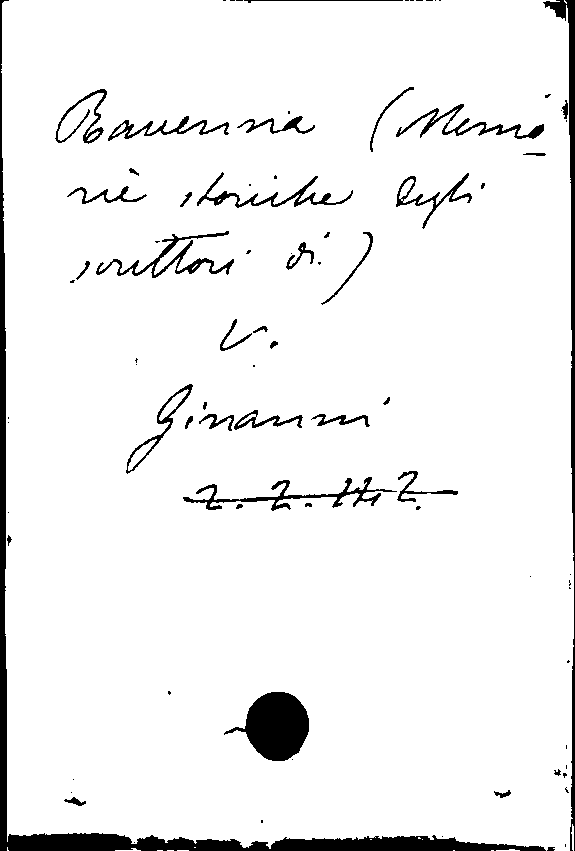 Ravenna (Memo
rie storiche degli
scrittori di)
V.
Ginanni